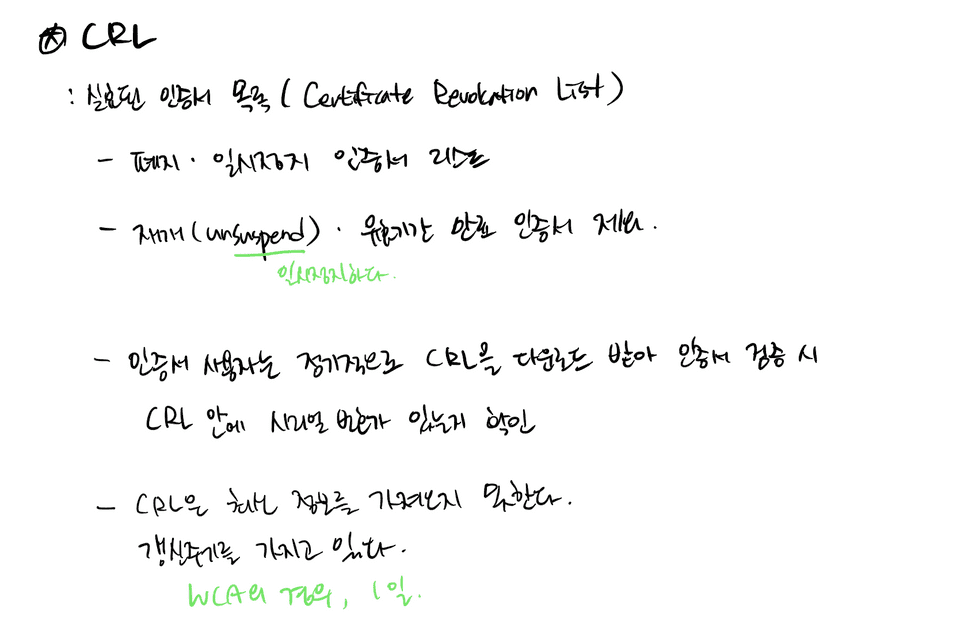 ⊛ CRL
: 실효된 인증서 목록 ( Certificate Revokation List )
- 폐지 · 일시정지 인증서 리스트
- 재개 (unsuspend) · 유효기간 만료 인증서 제외.
일시정지하다.
- 인증서 사용자는 정기적으로 CRL을 다운로드 받아 인증서 검증 시
CRL 안에 시리얼 번호가 있는지 확인
- CRL은 최신 정보를 가져오지 못한다.
갱신주기를 가지고 있다.
WCA의 경우, 1일.